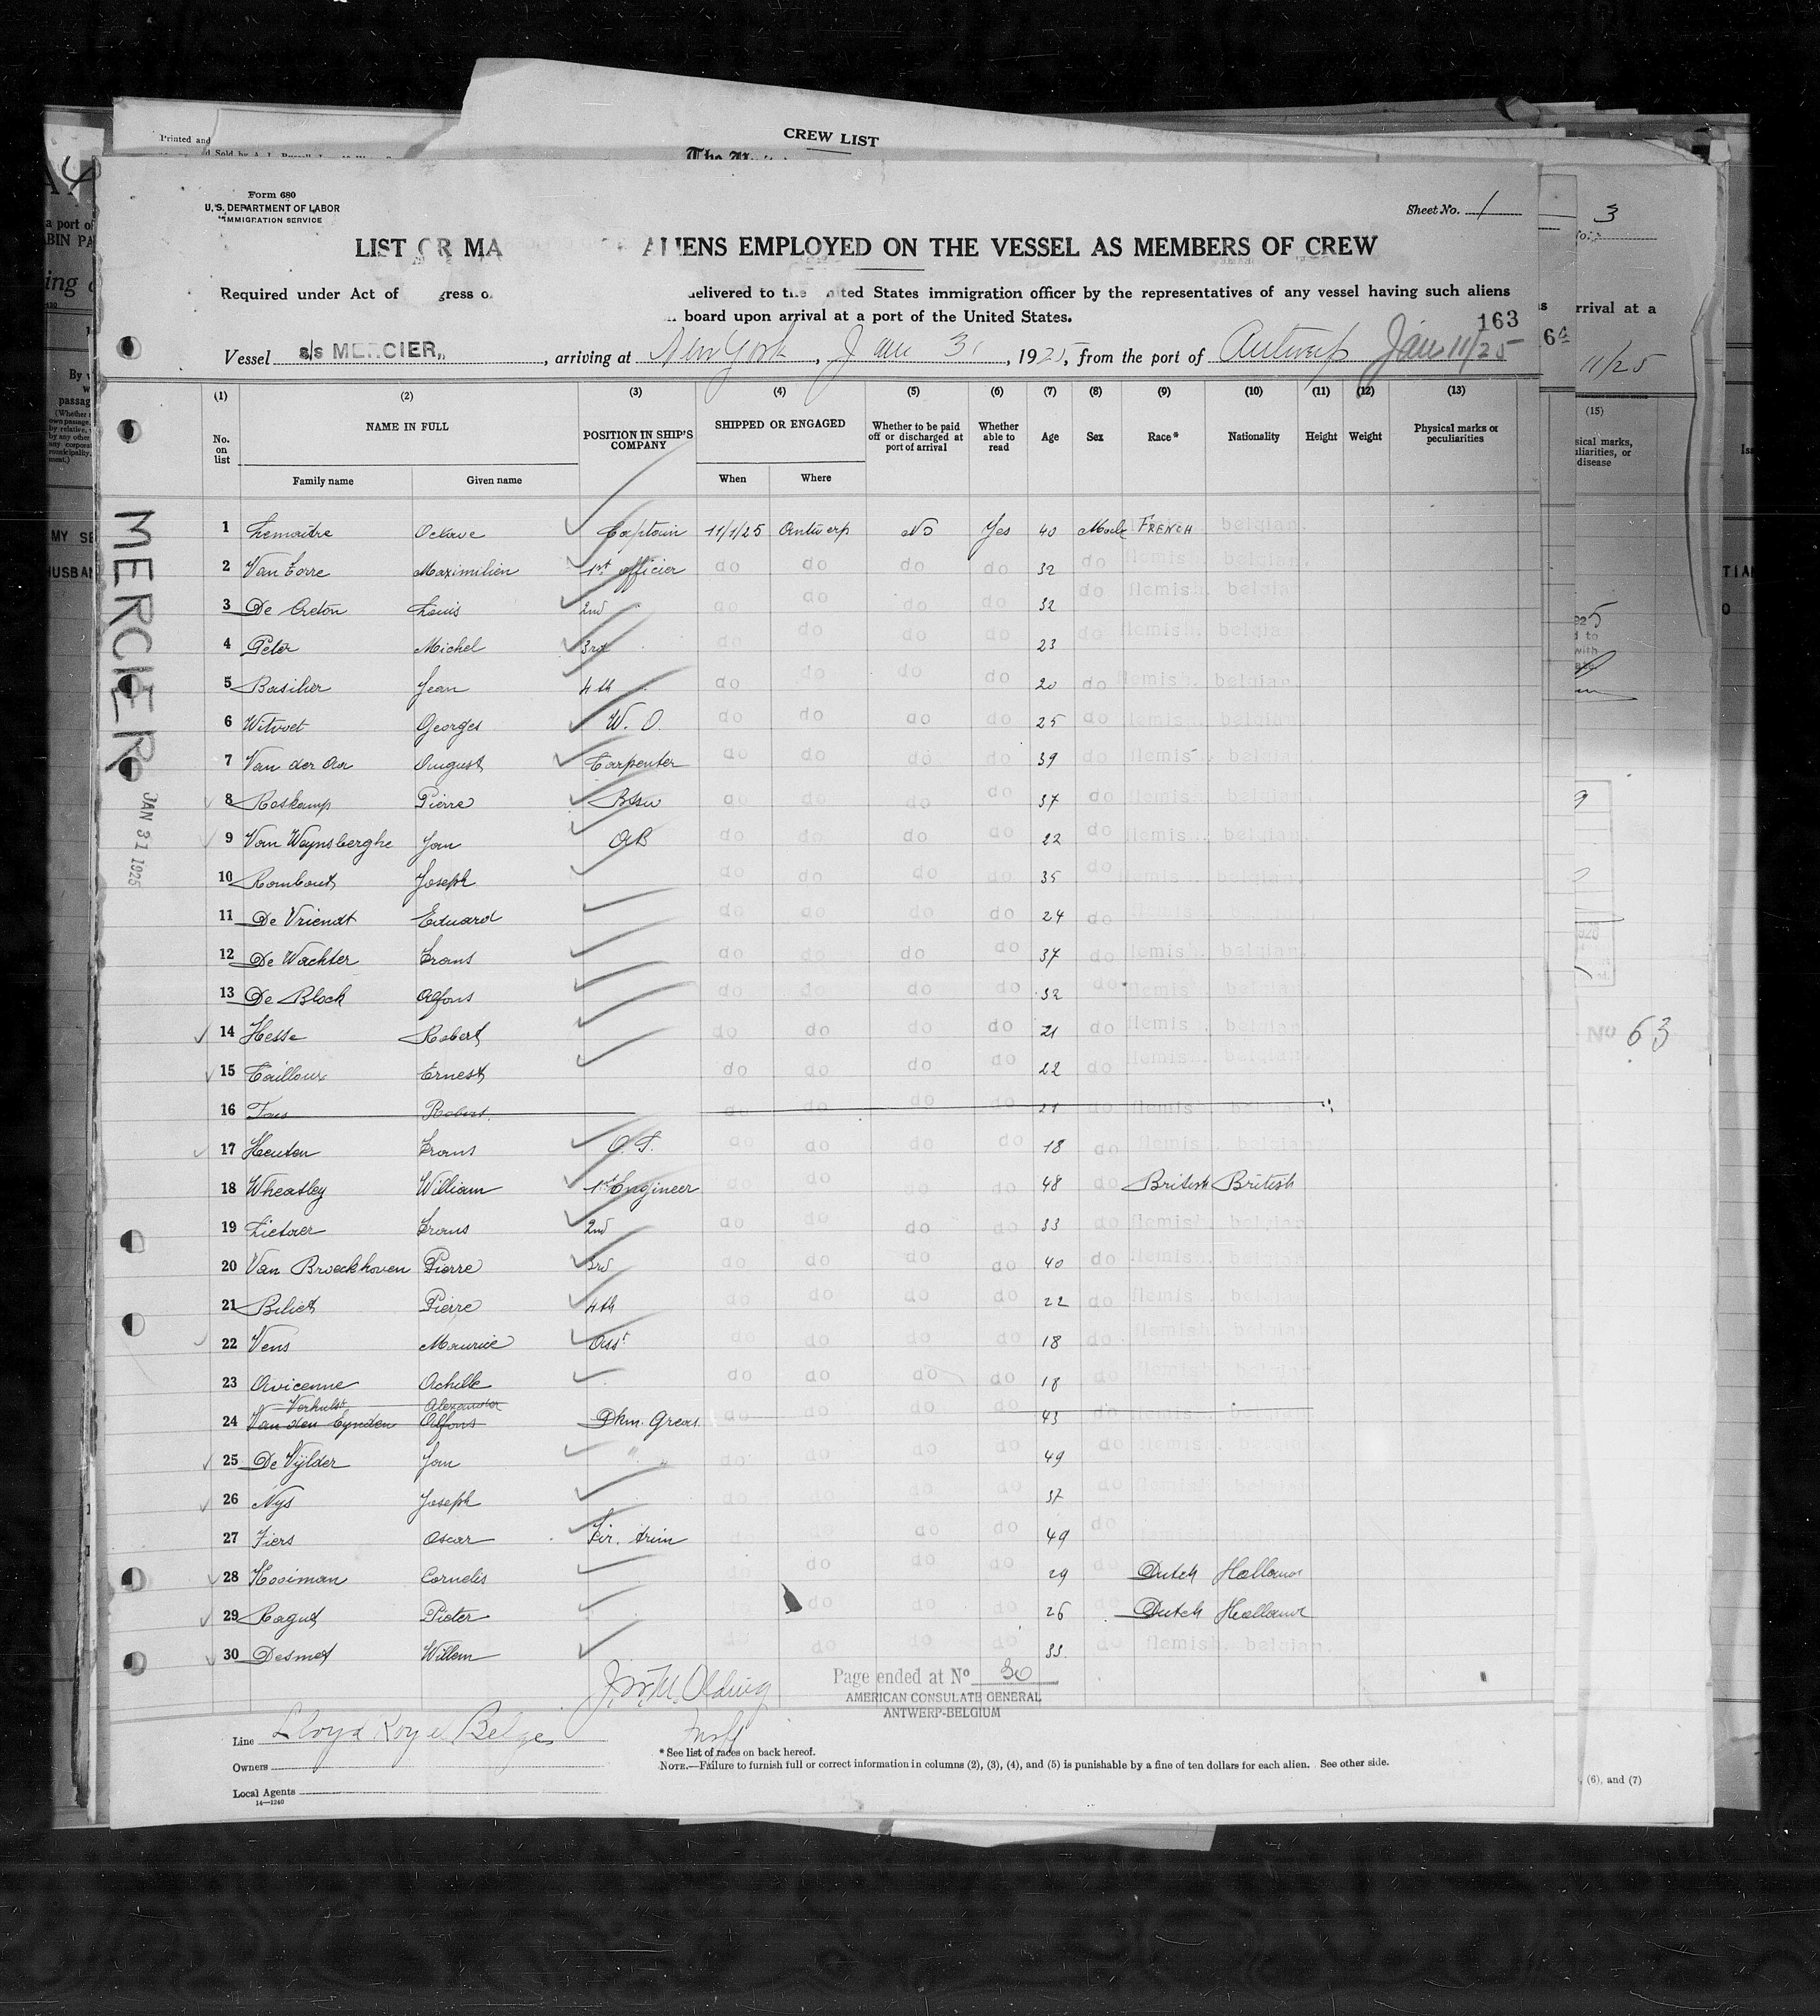 CREW LIST
Printed and
Form 680
U. S. DEPARTMENT OF LABOR
IMMIGRATION SERVICE
Sheet No. 1
3
LIST OR MA ALIENS EMPLOYED ON THE VESSEL AS MEMBERS OF CREW
Required under Act of gress o delivered to the United States immigration officer by the representatives of any vessel having such aliens
board upon arrival at a port of the United States.
rrival at a
163
64
Vessel s/s MERCIER, arriving at New York, Jan 31, 1925, from the port of Antwerp Jan 11/25
11/25
(1) (2) (3) (4) (5) (6) (7) (8) (9) (10) (11) (12) (13)
(15)
No. on list NAME IN FULL POSITION IN SHIP'S COMPANY SHIPPED OR ENGAGED Whether to be paid off or discharged at port of arrival Whether able to read Age Sex Race* Nationality Height Weight Physical marks or peculiarities
Family name Given name When Where
MERCIER
JAN 31 1925
1 Lemaitre Octave Captain 11/1/25 Antwerp No Yes 40 Male FRENCH belgian.
2 Van Torre Maximilien 1st officier do do do do 32 do flemish. belgian.
3 De Creton Louis 2nd do do do do 32 do flemish. belgian
4 Peter Michel 3rd do do do do 23 do flemish. belgian
5 Basilier Jean 4th do do do do 20 do flemish. belgian.
6 Witvoet Georges W. O. do do do do 25 do flemish. belgian
7 Van der Aa August Carpenter do do do do 39 do flemish. belgian
8 Roskamp Pierre Bsw do do do do 37 do flemish. belgian.
9 Van Waynsberghe Jan AB do do do do 22 do flemish. belgian.
10 Rombout Joseph do do do do 35 do flemish. belgian.
11 De Vriendt Eduard do do do do 24 do
12 De Wachter Frans do do do do 37 do flemish. belgian.
13 De Block Alfons do do do do 32 do flemish. belgian.
14 Hesse Robert do do do do 21 do flemis belgian
15 Tailloux Ernest do do do do 22 do flemish. belgian
16 Robert do do do do 21 do flemis belgian
17 Heuten Frans O. S. do do do do 18 do flemish. belgian
18 Wheatley William 1st Engineer do do do do 48 do British British
19 Lietaer Frans 2nd do do do do 33 do flemish. belgian
20 Van Broeckhoven Pierre 3rd do do do do 40 do flemish. belgian
21 Biliet Pierre 4th do do do do 22 do flemish. belgian
22 Vens Maurice Asst do do do do 18 do flemish. belgian
23 Avicenne Achille do do do do 18 do flemish. belgian
Verhulst Alexander
24 Van den Eynden Alfons Dkm. Greas. do do do do 43 do
25 De Vylder Jan " " do do do do 49 do flemish. belgian
26 Nys Joseph do do do do 37 do flemish. belgian
27 Fiers Oscar Fir. trim do do do do 49 do
28 Kooiman Cornelis do do do 29 do Dutch Holland
29 Ragut Pieter do do do 26 do Dutch Holland
30 Desmet Willem do do do do 33. do flemish. belgian.
No 63
Page ended at No 30
AMERICAN CONSULATE GENERAL
ANTWERP-BELGIUM
Line Lloyd Royal Belge
Owners
Local Agents
14—1240
* See list of races on back hereof.
NOTE.—Failure to furnish full or correct information in columns (2), (3), (4), and (5) is punishable by a fine of ten dollars for each alien. See other side.
, (6), and (7)